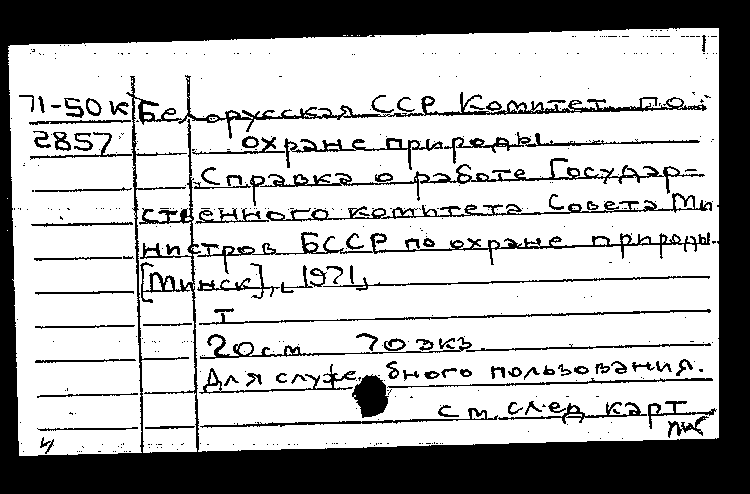 1
71-50к Белорусская ССР Комитет по
2857 охране природы.
Справка о работе Государ=
ственного комитета Совета Ми-
нистров БССР по охране природы.
[Минск], [1971]
т
20 см 70 экз.
Для служебного пользования.
см. след карт